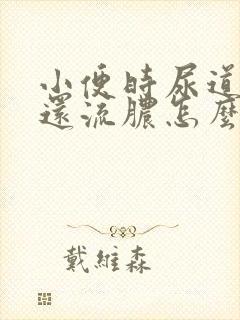 小便時尿道
還流膿怎麼
戴維森